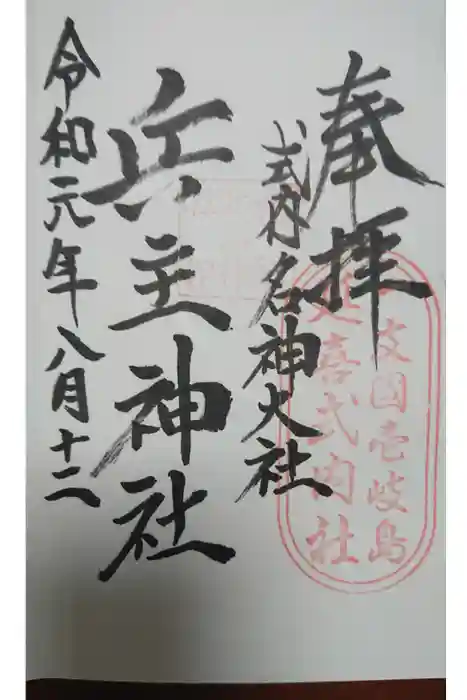 奉拝
壱岐國壱岐島
延喜式内社
式内名神大社
兵主神社
令和元年八月十二